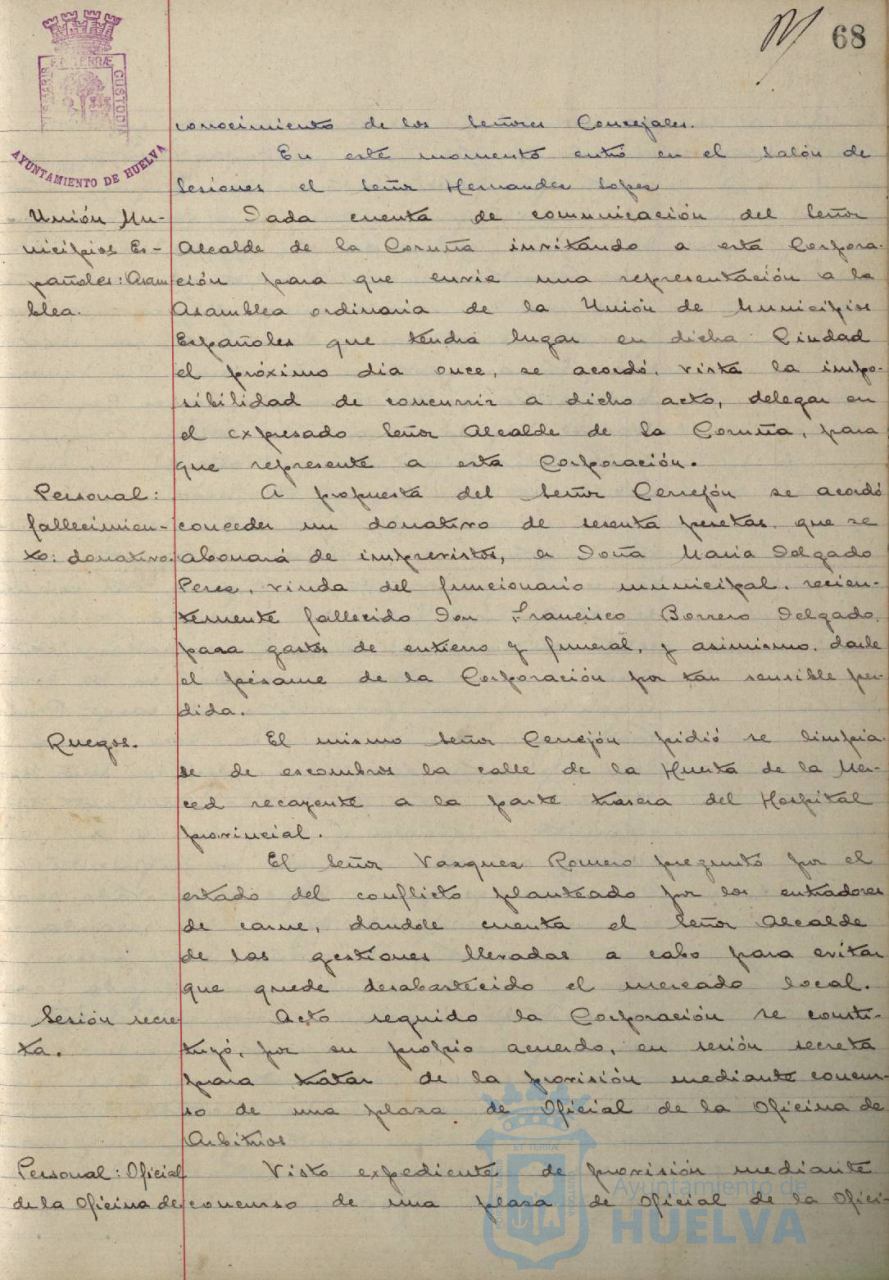 68
ET TERRÆ
CUSTODIA
AYUNTAMIENTO DE HUELVA
conocimiento de los Señores Concejales.
En este momento entró en el Salón de
Sesiones el Señor Hernandez Lopez
Unión Mu-
nicipios Es-
pañoles: Asam
blea.
Dada cuenta de comunicación del Señor
Alcalde de la Coruña invitando a esta Corpora-
ción para que envie una representación a la
Asamblea ordinaria de la Unión de Municipios
Españoles que tendrá lugar en dicha Ciudad
el próximo dia once, se acordó, vista la impo-
sibilidad de concurrir a dicho acto, delegar en
el expresado Señor Alcalde de la Coruña, para
que represente a esta Corporación.
Personal:
fallecimien-
to: donativo.
A propuesta del Señor Cerrejón se acordó
conceder un donativo de sesenta pesetas, que se
abonará de imprevistos, a Doña Maria Delgado
Perez, viuda del funcionario municipal, recien-
temente fallecido Don Francisco Borrero Delgado,
para gastos de entierro y funeral, y asimismo, darle
el pésame de la Corporación por tan sensible per-
dida.
Ruegos.
El mismo Señor Cerrejón pidió se limpia-
se de escombros la calle de la Huerta de la Mer-
ced recayente a la parte trasera del Hospital
provincial.
El Señor Vazquez Romero preguntó por el
estado del conflicto planteado por los entradores
de carne, dandole cuenta el Señor Alcalde
de las gestiones llevadas a cabo para evitar
que quede desabastecido el mercado local.
Sesión secre-
ta.
Acto seguido la Corporación se consti-
tuyó, por su propio acuerdo, en sesión secreta
para tratar de la provisión mediante concur-
so de una plaza de Oficial de la Oficina de
Arbitrios
Personal: Oficial
de la Oficina de
Visto expediente de provisión mediante
concurso de una plaza de Oficial de la Ofici-
Ayuntamiento de
HUELVA